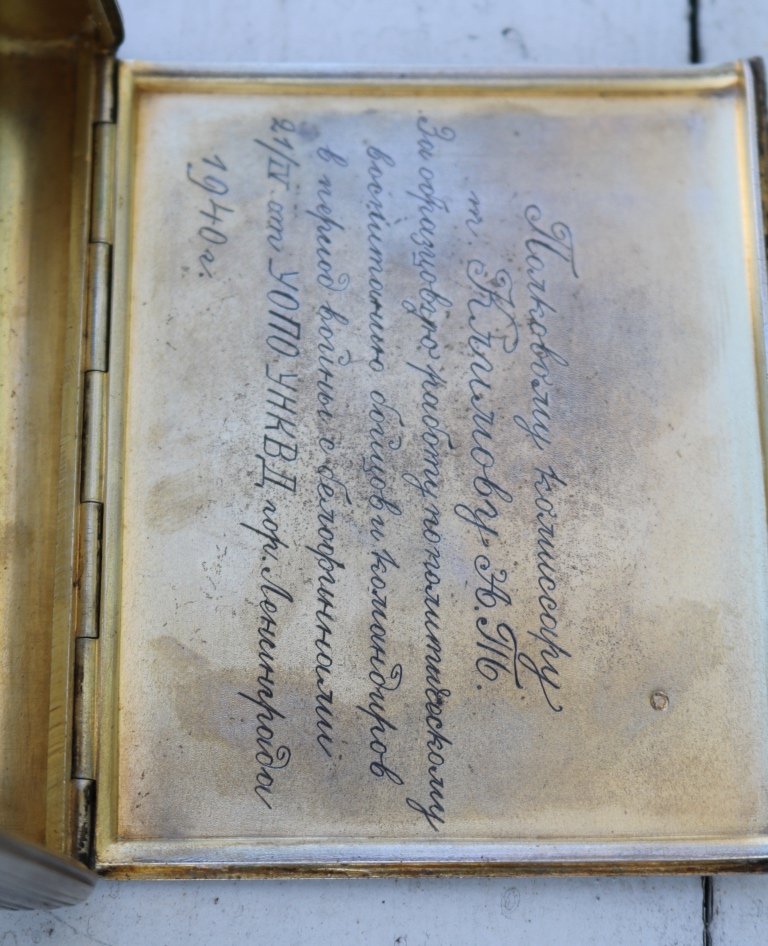 Полковому комиссару
т. Климову Н.Т.
За образцовую работу по политическому
воспитанию бойцов и командиров
в период войны с белофиннами
21/IV от УОПО УНКВД гор. Ленинграда
1940 г.